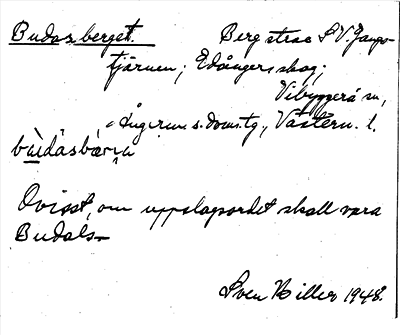 Budasberget. Berg strax S V. Gångs-
tjärnen; Edångers skog;
Vibyggerå sn,
Ångerm. s. doms.tg., Västern. l.
Ovisst, om uppslagsordet skall vara
Budals-
Sven Hiller 1948.